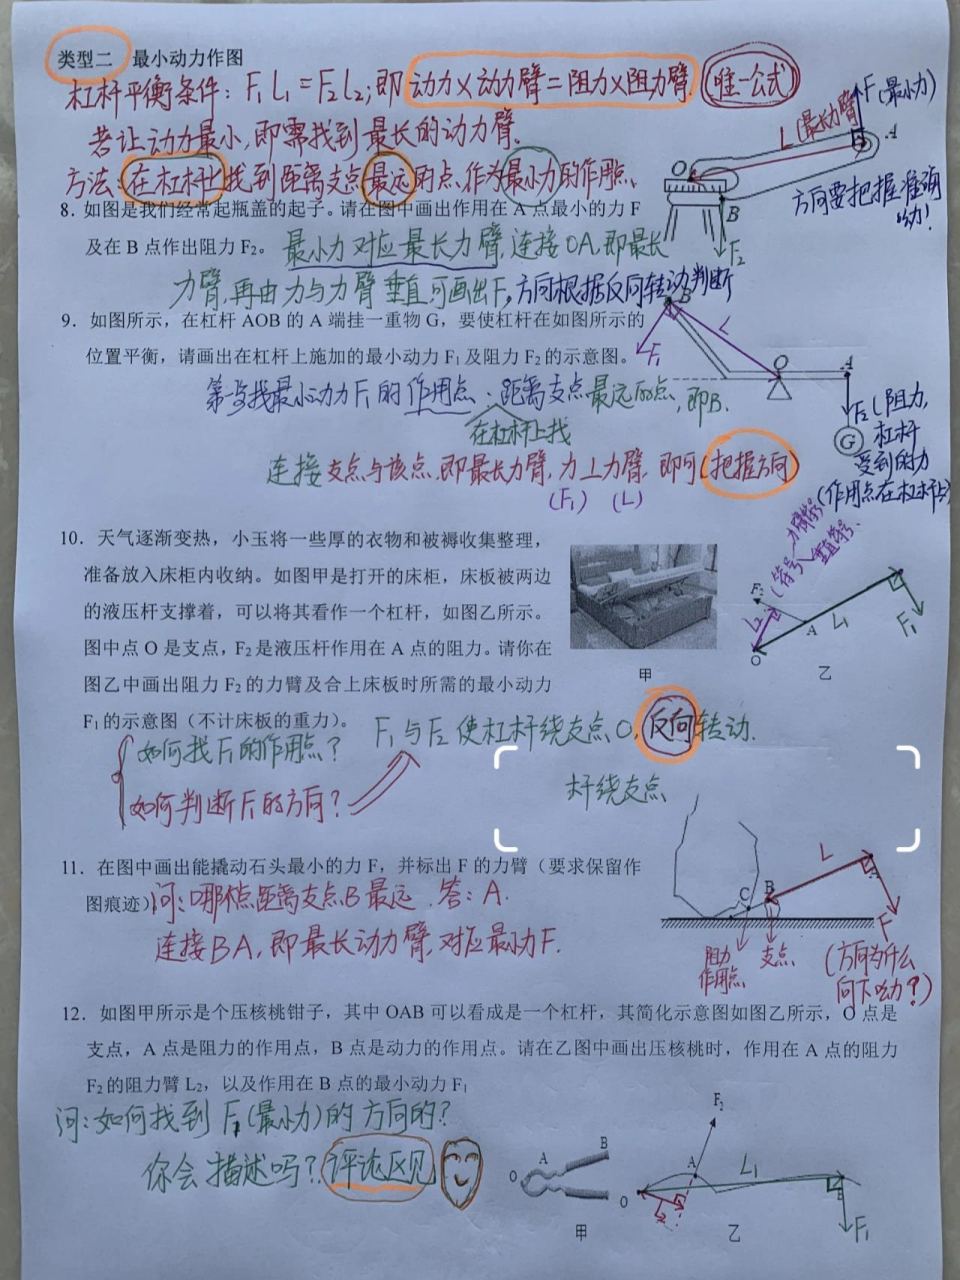 类型二 最小动力作图
杠杆平衡条件：F₁L₁＝F₂L₂；即 动力×动力臂＝阻力×阻力臂.（唯一公式）
若让动力最小，即需找到最长的动力臂.
方法：在杠杆上找到距离支点最远的点、作为最小力的作用点、
F（最小力）
L（最长力臂）
A
O
B
F₂
方向要把握准确哟！
8. 如图是我们经常起瓶盖的起子。请在图中画出作用在 A 点最小的力 F
及在 B 点作出阻力 F₂。 最小力对应最长力臂，连接OA，即最长
力臂，再由力与力臂垂直可画出F，方向根据反向转动判断
9. 如图所示，在杠杆 AOB 的 A 端挂一重物 G，要使杠杆在如图所示的
位置平衡，请画出在杠杆上施加的最小动力 F₁ 及阻力 F₂ 的示意图。
B
L
F₁
O
A
G
F₂（阻力，
杠杆
受到的力
（作用点在杠杆上）
第一步找最小动力F₁的作用点：距离支点最远的点，即B.
在杠杆上找
连接支点与该点，即最长力臂，力⊥力臂，即可（把握方向）
（F₁） （L）
10. 天气逐渐变热，小玉将一些厚的衣物和被褥收集整理，
准备放入床柜内收纳。如图甲是打开的床柜，床板被两边
的液压杆支撑着，可以将其看作一个杠杆，如图乙所示。
图中点 O 是支点，F₂ 是液压杆作用在 A 点的阻力。请你在
图乙中画出阻力 F₂ 的力臂及合上床板时所需的最小动力
F₁ 的示意图（不计床板的重力）。
甲
（符号
力臂符号
垂直符号
F₂
L₂
A
L₁
F₁
O
乙
F₁与F₂使杠杆绕支点O，反向转动.
如何找F₁的作用点？
如何判断F₁的方向？
杆绕支点
11. 在图中画出能撬动石头最小的力 F，并标出 F 的力臂（要求保留作
图痕迹） 问：哪个点距离支点B最远. 答：A.
连接BA，即最长动力臂，对应最小力F.
C
B
L
A
F
阻力
作用点
支点
（方向为什么
向下呢？）
12. 如图甲所示是个压核桃钳子，其中 OAB 可以看成是一个杠杆，其简化示意图如图乙所示，O 点是
支点，A 点是阻力的作用点，B 点是动力的作用点。请在乙图中画出压核桃时，作用在 A 点的阻力
F₂ 的阻力臂 L₂，以及作用在 B 点的最小动力 F₁
问：如何找到F₁（最小力）的方向的？
你会描述吗？评论区见
O
A
B
甲
F₂
A
L₁
O
L₂
F₁
乙